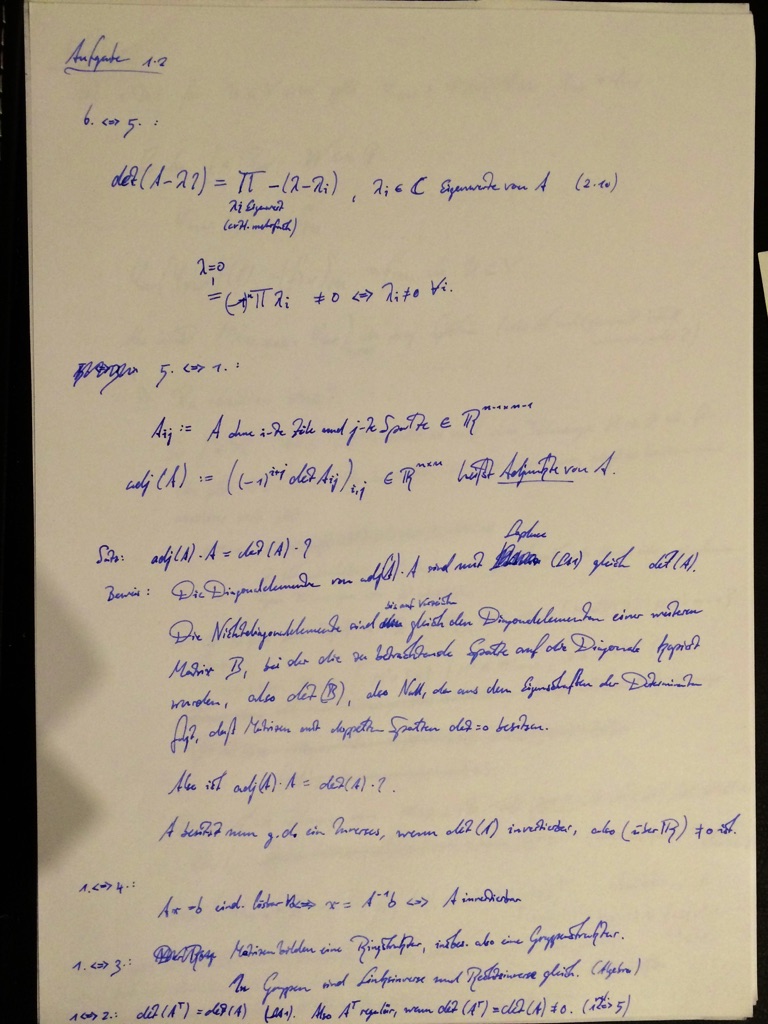 Aufgabe 1.2
6. <=> 5. :
det(A-λ1) = Π -(λ-λi) , λi ∈ ℂ Eigenwerte von A (2.10)
λi Eigenwert
(evtl. mehrfach)
λ=0
= (-1)^n Π λi ≠0 <=> λi≠0 ∀i.
5. <=> 1. :
Aij := A ohne i-te Zeile und j-te Spalte ∈ ℝ^{n-1×n-1}
adj(A) := ((-1)^{i+j} det Aij)_{i,j} ∈ ℝ^{n×n} heißt Adjunkte von A.
Satz: adj(A) · A = det(A) · 1
Laplace
Beweis: Die Diagonalelemente von adj(A) · A sind mit (LA1) gleich det(A).
bis auf Vorzeichen
Die Nichtdiagonalelemente sind gleich den Diagonalelementen einer weiteren
Matrix B, bei der die zu betrachtende Spalte auf die Diagonale kopiert
wurden, also det(B), also Null, da aus den Eigenschaften der Determinante
folgt, daß Matrizen mit doppelten Spalten det=0 besitzen.
Also ist adj(A) · A = det(A) · 1.
A besitzt nun g.d. ein Inverses, wenn det(A) invertierbar, also (über ℝ) ≠0 ist.
1. <=> 4. :
Ax=b eind. lösbar <=> x = A^{-1}b <=> A invertierbar
1. <=> 3. : Matrizen bilden eine Ringstruktur, insbes. also eine Gruppenstruktur.
In Gruppen sind Linksinverse und Rechtsinverse gleich. (Algebra)
1 <=> 2. : det(A^T) = det(A) (LA1). Also A^T regulär, wenn det(A^T) = det(A) ≠ 0. (1<=>5)